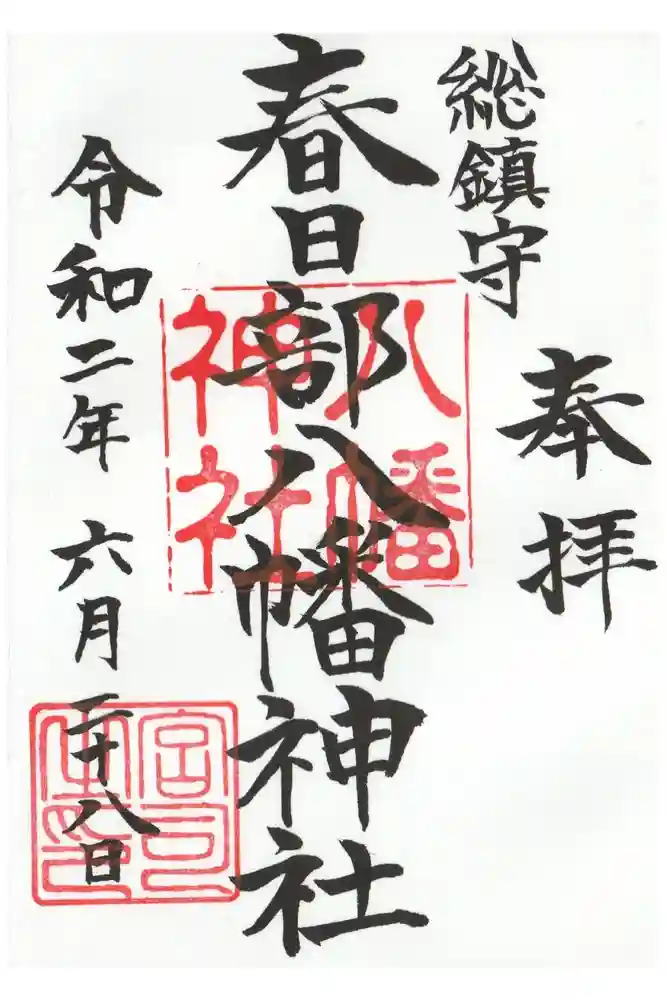 奉拝
総鎮守
春日部八幡神社
八幡神社
令和二年 六月 二十八日
宮司之印